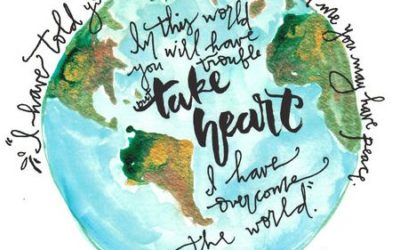 "I have told y
me you may have peace.
In this world
you will have
trouble
take
heart
I have
overcome
the world."